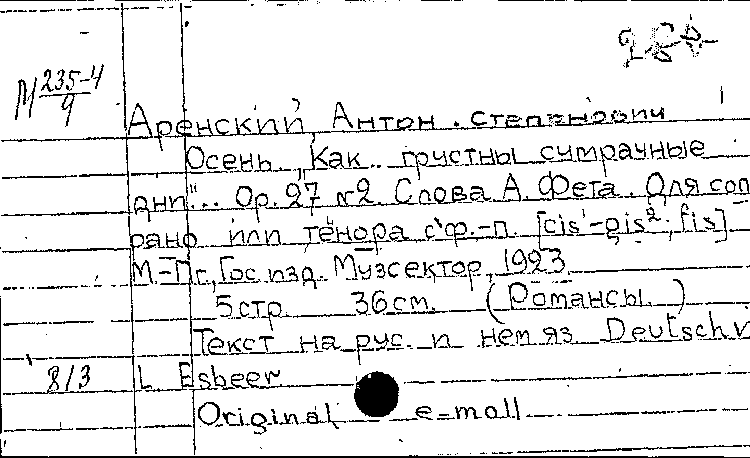 М 235-4/9
Аренский, Антон Степанович
Осень „Как грустны сумрачные
дни"... Op. 27 №2. Слова А. Фета. Для соп
рано или тенора с ф.-п. [cis¹-gis²; fis]
М.-Пг., Гос. изд. Музсектор, 1923
5 стр. 36 cm. (Романсы.)
Текст на рус. и нем яз Deutsch v
813 L Esbeer
Original e-moll